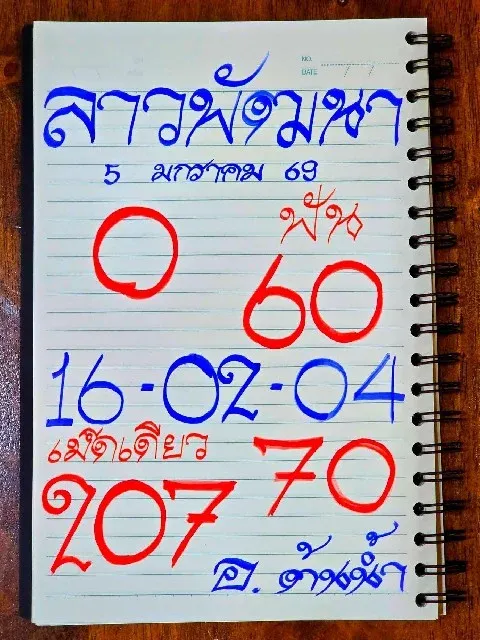 NO.
DATE
ลาวพัฒนา
5 มกราคม 69
0
ฟัน
60
16-02-04
เม็ดเดียว
207
70
อ. ต้นน้ำ